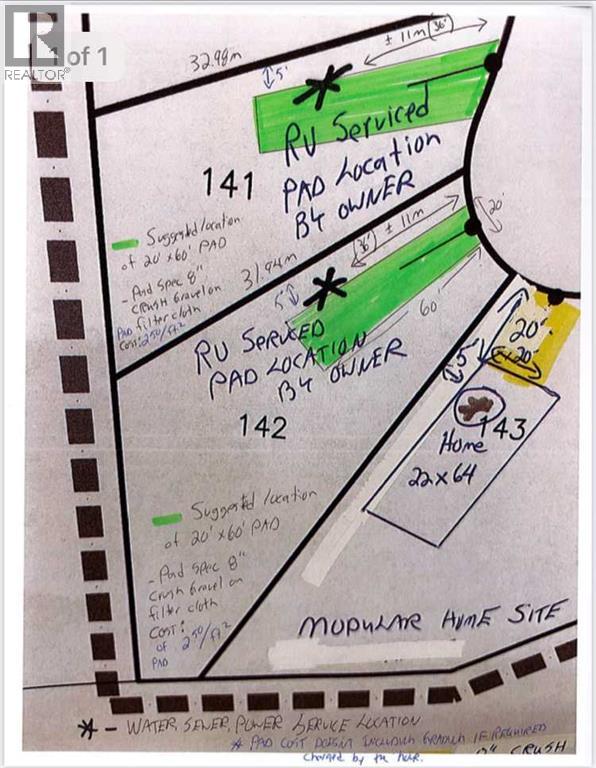 R
REALTOR®
1 of 1
32.98m
5'
± 11m (36')
RV Serviced
PAD Location
BY OWNER
141
Suggested location
of 20' x 60' PAD
- Pad Spec 8"
crush Gravel on
filter cloth
PAD
COST: 2 50/ft2
31.94m
(36') ± 11m
20'
5'
60'
RV SERVICED
PAD LOCATION
BY OWNER
142
20'
5'
143
Home
22 x 64
Suggested location
of 20' x 60' PAD
- Pad Spec 8"
Crush Gravel on
filter cloth
COST: 2 50/ft2
of
PAD
MODULAR HOME SITE
* - WATER, SEWER, POWER SERVICE LOCATION
* PAD COST DOESN'T INCLUDE IF REQUIRED
Charged by the hour.
CRUSH